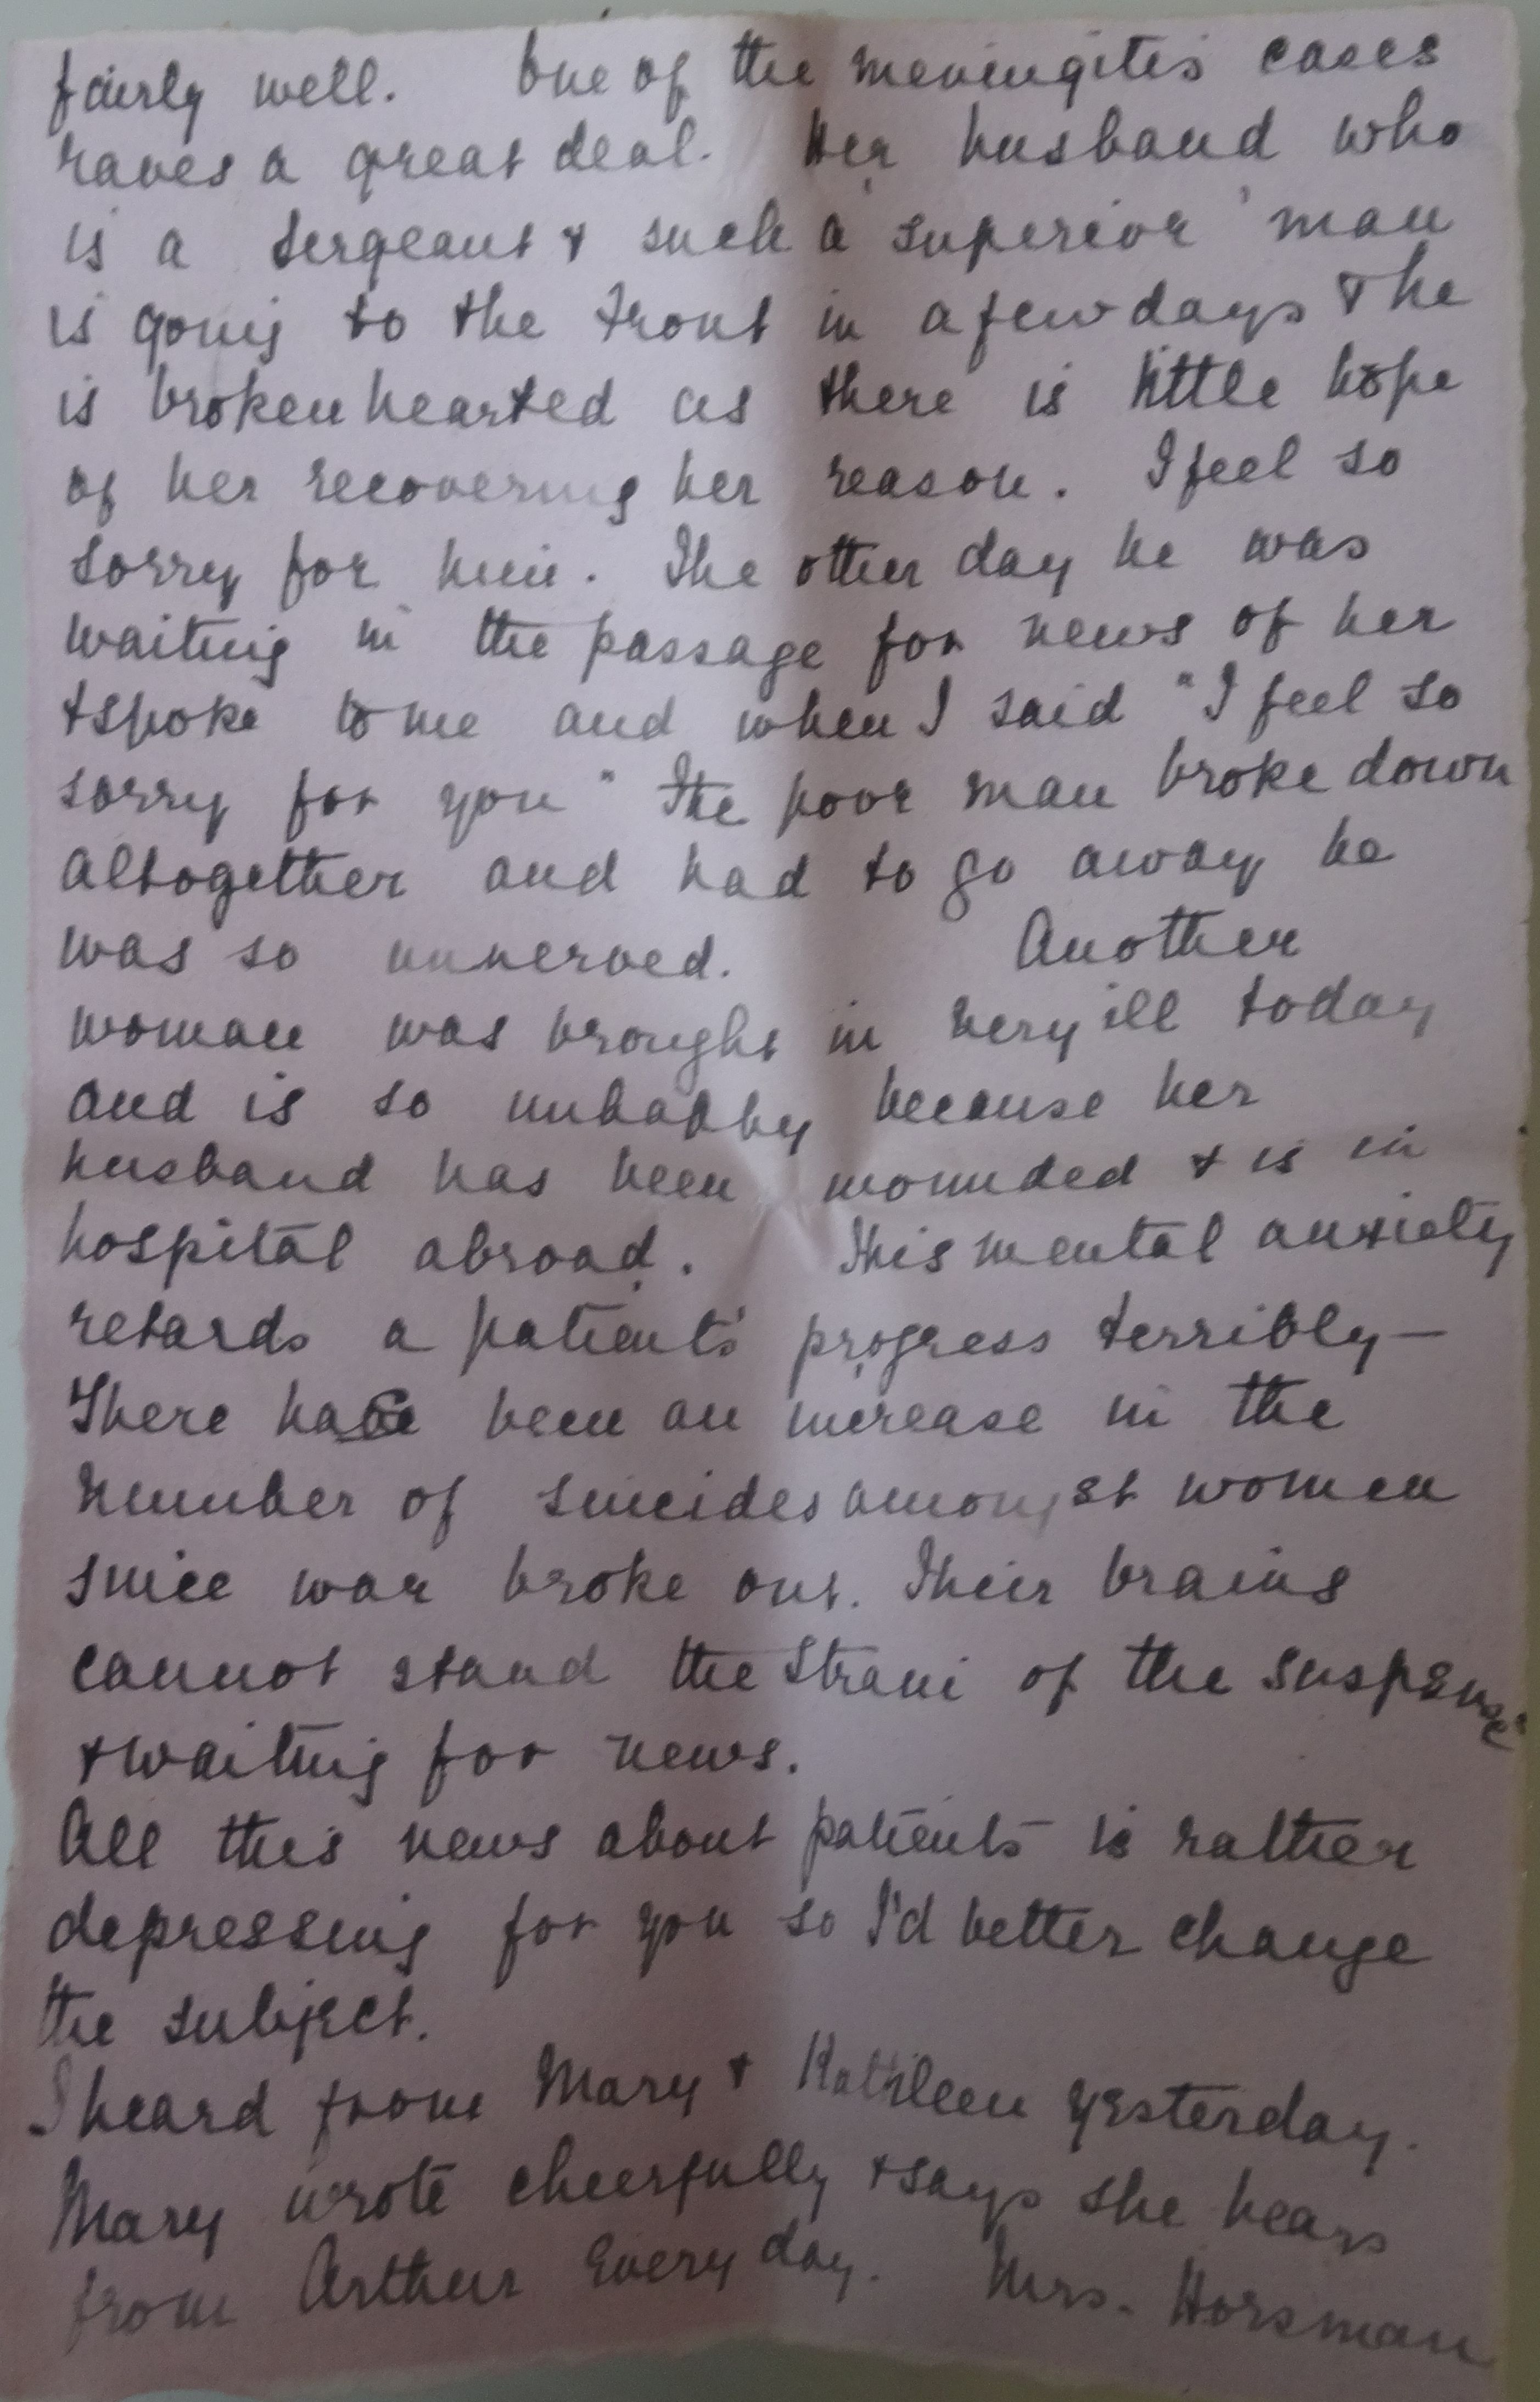 fairly well. One of the meningitis cases
raves a great deal. Her husband who
is a Sergeant & such a 'superior' man
is going to the front in a few days & he
is broken hearted as there is little hope
of her recovering her reason. I feel so
sorry for him. The other day he was
waiting in the passage for news of her
& spoke to me and when I said "I feel so
sorry for you" The poor man broke down
altogether and had to go away he
was so unnerved. Another
woman was brought in very ill today
and is so unhappy because her
husband has been wounded & is in
hospital abroad. This mental anxiety
retards a patient's progress terribly —
There has been an increase in the
number of suicides amongst women
since war broke out. Their brains
cannot stand the strain of the suspense
& waiting for news.
All this news about patients is rather
depressing for you so I'd better change
the subject.
I heard from Mary & Kathleen yesterday.
Mary wrote cheerfully & says she hears
from Arthur every day. Mrs. Horsman